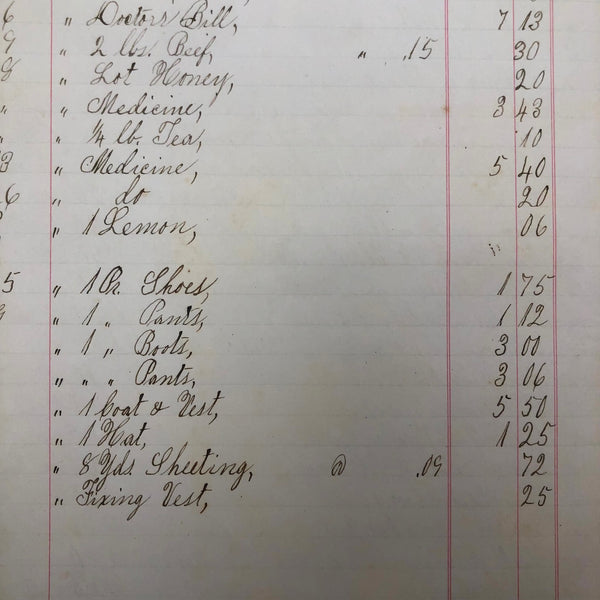 6 " Doctors Bill, 7 13
9 " 2 lbs. Beef, " .15 30
8 " Lot Honey, 20
" " Medicine, 3 43
" " ¼ lb. Tea, 10
3 " Medicine, 5 40
6 " do 20
" 1 Lemon, 06
5 " 1 Pr. Shoes, 1 75
9 " 1 " Pants, 1 12
" 1 " Boots, 3 00
" " " Pants, 3 06
" 1 Coat & Vest, 5 50
" 1 Hat, 1 25
" 8 Yds. Sheeting, @ .09 72
" Fixing Vest, 25